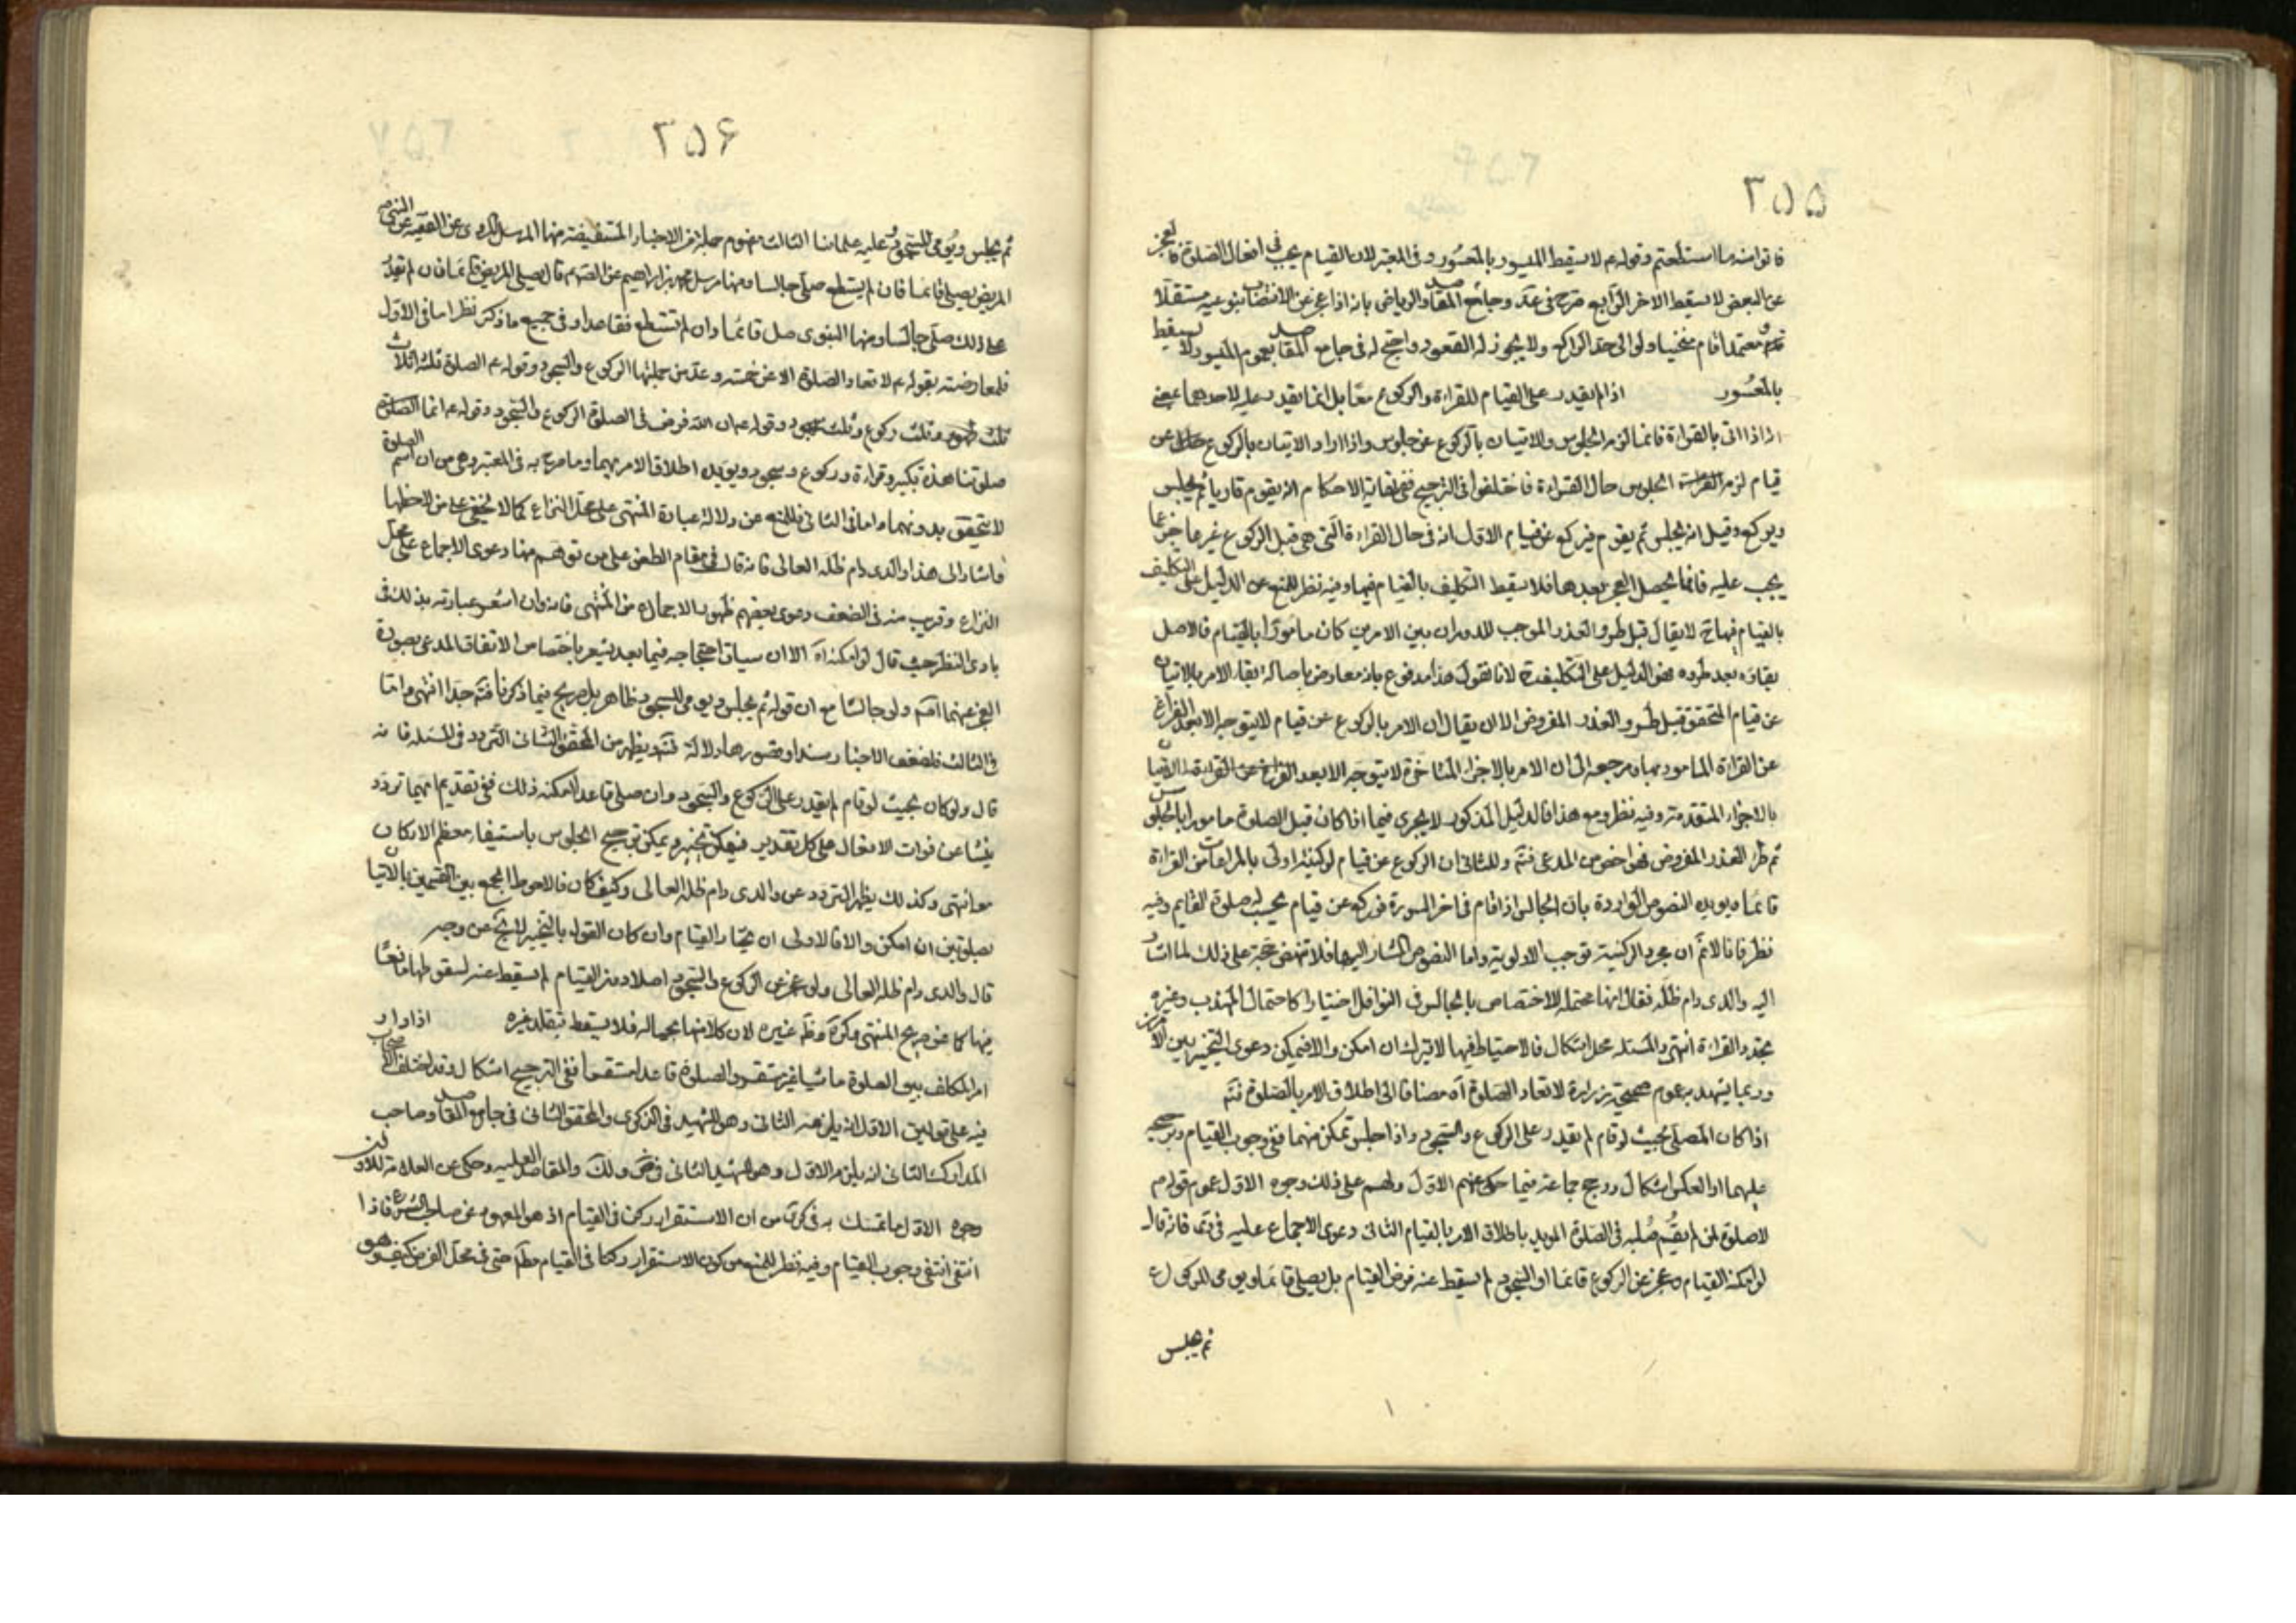 ٢٥٥
فاتوا منه ما استطعتم وقوله ع لا يسقط الميسور بالمعسور وفى المعتبر لان القيام يجب فى افعال الصلوة فالعجز
عن البعض لا يسقط الاخر الرابع صرح فى عد وجامع المقاصد والرياض بانه اذا عجز عن الانتصاب بنوعيه مستقلا
ومعتمدا قام منحنيا ولو الى حد الراكع ولا يجوز له القعود واحتج له فى جامع المقاصد بعموم الميسور لا يسقط
بالمعسور اذا لم يقدر على القيام للقراءة والركوع معا بل انما يقدر عليه لاحدهما
اذا اتى بالقراءة قائما لزمه الجلوس والاتيان بالركوع عن جلوس واذا اراد الاتيان بالركوع عن
قيام لزم الجلوس حال القراءة فاختلفوا فى الترجيح ففى نهاية الاحكام انه يقوم قاريا ثم يجلس
ويركع وقيل انه يجلس ثم يقوم فيركع عن قيام الاول انه فى حال القراءة التى هى قبل الركوع غير عاجز عما
يجب عليه فانما يحصل العجز بعدها فلا يسقط التكليف بالقيام فيها وفيه نظر للمنع عن الدليل على التكليف
بالقيام فيها لا يقال قبل طرو العذر الموجب للدوران بين الامرين كان مامورا بالقيام فالاصل
بقاؤه بعد طروه فهو الدليل على التكليف لانا نقول هذا مدفوع بانه معارض باصالة بقاء الامر بالاتيان
عن قيام المتحقق قبل طرو العذر المفروض الا ان يقال ان الامر بالركوع عن قيام لا يتوجه الا بعد الفراغ
عن القراءة المامور بها ومرجعه الى ان الامر بالاجزاء المتاخرة لا يتوجه الا بعد الفراغ عن الاتيان
بالاجزاء المتقدمة وفيه نظر ومع هذا فالدليل المذكور لا يجرى فيما اذا كان قبل الصلوة مامورا بالجلوس
ثم طرا العذر المفروض فهو اخص من المدعى فتم وللثانى ان الركوع عن قيام لركنيته اولى بالمراعات من القراءة
قائما ويويده النصوص الواردة بان الجالس اذا قام فى اخر السورة فركع عن قيام يحسب له صلوة القايم وفيه
نظر فانا لا نم ان مجرد الركنية توجب الاولوية واما النصوص المشار اليها فلا تنهض حجة على ذلك لما اشار
اليه والدى دام ظله فقال انها محتملة للاختصاص بالجالس فى النوافل اختيارا كاحتمال المهذب وغيره
تجدد القراءة انتهى والمسئلة محل اشكال فالاحتياط فيها لا يترك ان امكن والا فيمكن دعوى التخيير بين الامرين
وربما يشهد به عموم صحيحة زرارة لا تعاد الصلوة اه مضافا الى اطلاق الامر بالصلوة فتم
اذا كان المصلى بحيث لو قام لم يقدر على الركوع والسجود واذا جلس تمكن منهما ففى وجوب القيام وترجيحه
عليهما او العكس اشكال ورجح جماعة فيما حكى عنهم الاول ولهم على ذلك وجوه الاول عموم قولهم
لا صلوة لمن لم يقم صلبه فى الصلوة المويد باطلاق الامر بالقيام الثانى دعوى الاجماع عليه فى هى فانه قال
لو امكنه القيام وعجز عن الركوع قائما او السجود لم يسقط عنه فرض القيام بل يصلى قائما ويومى للركوع
ثم يجلس
٢٥٦
ثم يجلس ويومى للسجود وعليه علماؤنا الثالث عموم جملة من الاخبار المستفيضة منها المرسل المروى عن الفقيه عن النبى ص
المريض يصلى قائما فان لم يستطع صلى جالسا ومنها مرسل محمد بن ابراهيم عن الصادق ع قال يصلى المريض قائما فان لم يقدر
على ذلك صلى جالسا ومنها النبوى صل قائما وان لم تستطع فقاعدا وفى جميع ما ذكر نظر اما فى الاول
فلمعارضته بقوله ع لا تعاد الصلوة الا عن خمسة وعد من جملتها الركوع والسجود وقوله ع الصلوة ثلثة اثلاث
ثلث طهور وثلث ركوع وثلث سجود وقوله ع ان الله فرض فى الصلوة الركوع والسجود وقوله ع انما الصلوة
صلوتنا هذه تكبير وقراءة وركوع وسجود ويويده اطلاق الامر بهما وما صرح به فى المعتبر وهى من ان اسم الصلوة
لا يتحقق بدونهما واما فى الثانى فللمنع من دلالة عبارة المنتهى على محل النزاع كما لا يخفى على من لاحظها
واشار الى هذا والدى دام ظله العالى فانه قال فى مقام الطعن على من توهم منها دعوى الاجماع على محل
النزاع وقريب منه فى الضعف دعوى بعضهم ظهور الاجماع من المنتهى فانه وان اشعر عبارته بذلك فى
بادى النظر حيث قال لو امكنه اه الا ان سياق احتجاجه فيما بعد يشعر باختصاص الاتفاق المدعى بصورة
العجز عنهما اه ولو جالسا مع ان قوله ثم يجلس ويومى للسجود ظاهر بل صريح فيما ذكرنا فتم جدا انتهى واما
فى الثالث فلضعف الاخبار سندا وقصورها دلالة وقد يظهر من المحقق الثانى التردد فى المسئلة فانه
قال ولو كان بحيث لو قام لم يقدر على الركوع والسجود وان صلى قاعدا امكنه ذلك ففى تقديم ايهما تردد
ينشا عن فوات الافعال على كل تقدير فيمكن تخييره ويمكن ترجيح الجلوس باستيفاء معظم الاركان
معه انتهى وكذلك يظهر التردد عن والدى دام ظله العالى وكيف كان فالاحوط الجمع بين القسمين بالاتيان
بصلوتين ان امكن والا فالاولى ان يختار القيام وان كان القول بالتخيير لا يخ عن وجه
قال والدى دام ظله العالى ولو عجز عن الركوع والسجود اصلا دون القيام لم يسقط عنه لسقوطهما قطعا
منها كما عن صريح المنتهى وكره وظ غيره لان كلا منها بحياله فلا يسقط بفقد غيره اذا دار
امر المكلف بين الصلوة ماشيا غير مستقر والصلوة قاعدا مستقرا ففى الترجيح اشكال وقد اختلف الاصحاب
فيه على قولين الاول انه يلزمه الثانى وهو الشهيد فى الذكرى والمحقق الثانى فى جامع المقاصد وصاحب
المدارك الثانى انه يلزمه الاول وهو للشهيد الثانى فى ض ولك والمقاصد العلية وحكى عن العلامة للاولين
وجوه الاول ما تمسك به فى كرى من ان الاستقرار ركن فى القيام اذ هو المعهود من صاحب الشرع فاذا
انتفى انتفى وجوب القيام وفيه نظر للمنع من كون الاستقرار ركنا فى القيام مطلقا حتى فى محل الفرض كيف وهو